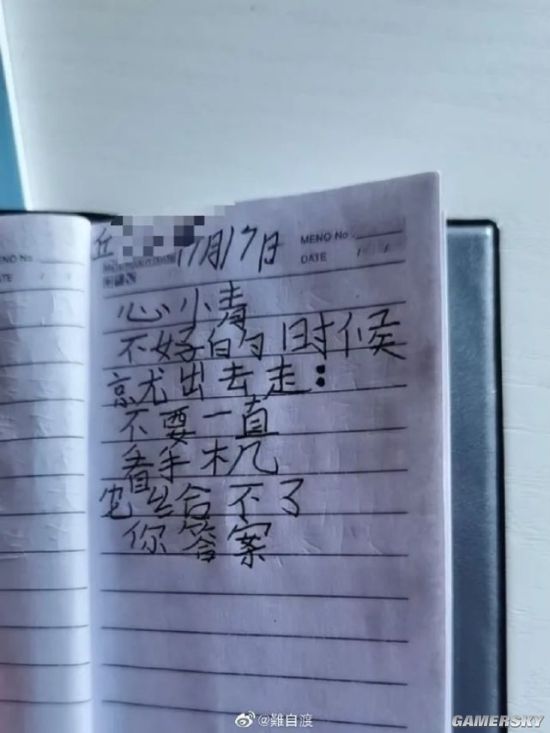 丘
11月17日
MENO No
DATE / /
DATE / /
心小青
不好的时候
京尤出去走:
不要一直
看手机
它给不了
你答案
@难自渡
GAMERSKY